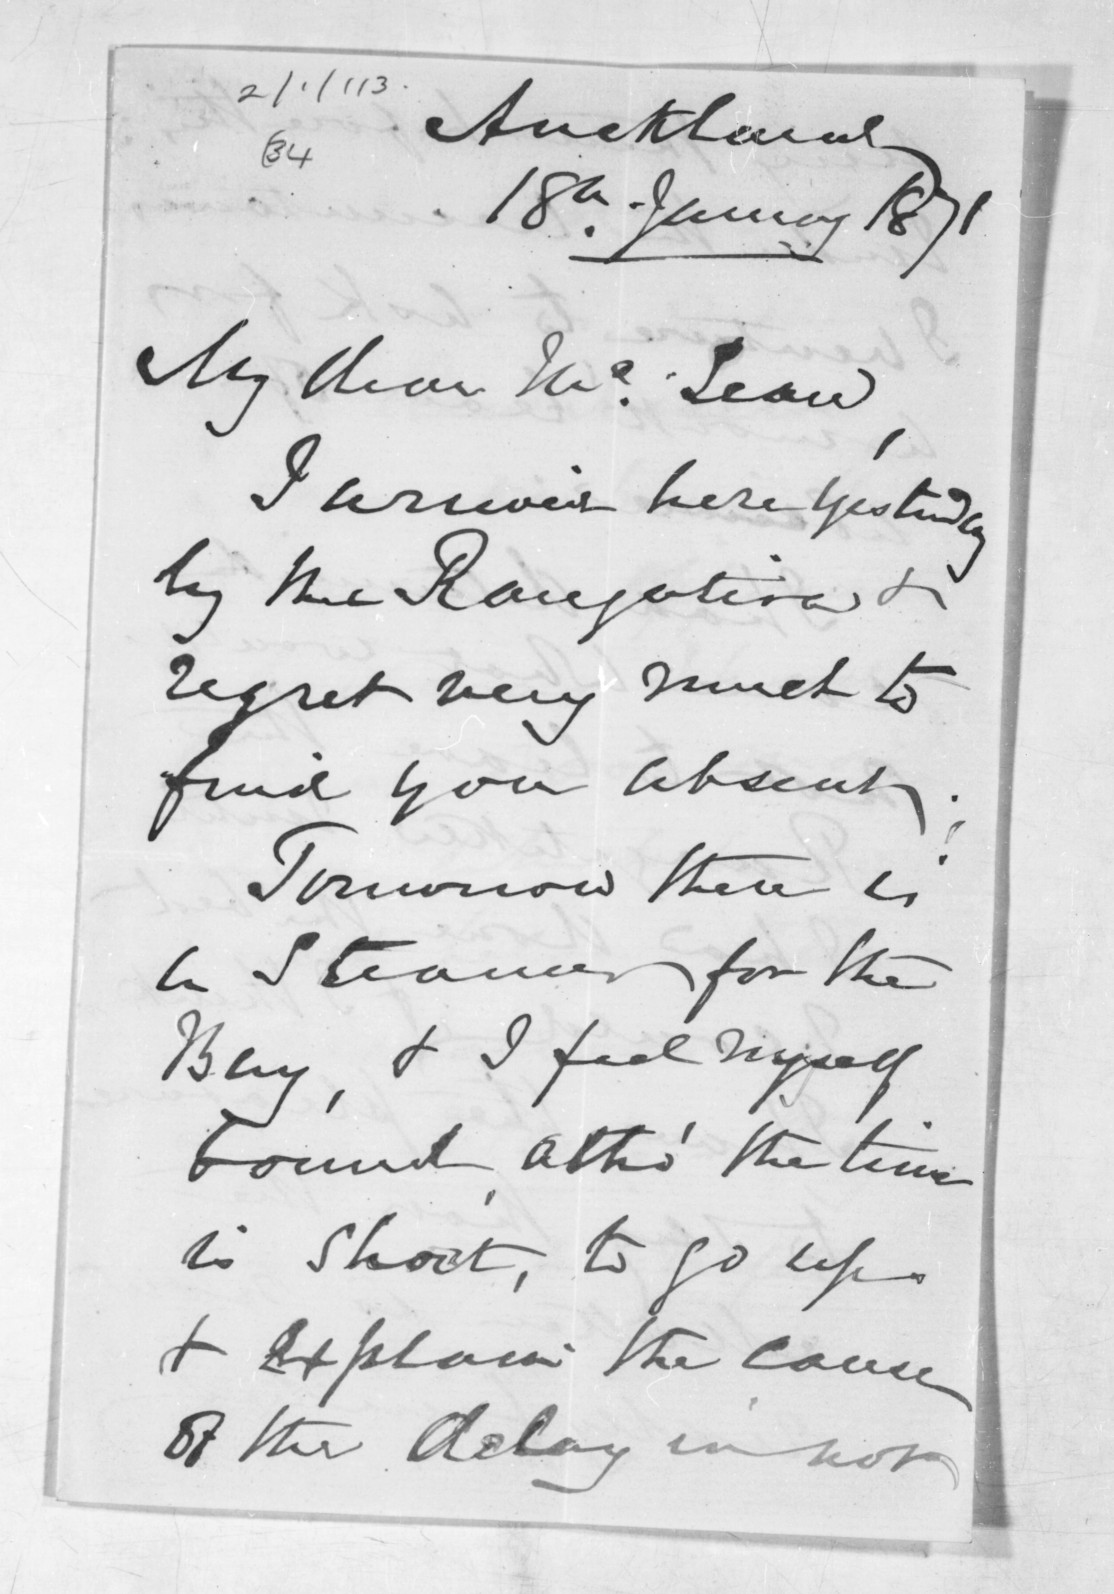 2/1/113.
34
Auckland
18th. January 1871
My dear Mc. Lean,
I arrived here yesterday
by the Rangatira &
regret very much to
find you absent.
Tomorrow there is
a Steamer for the
Bay, & I feel myself
bound, altho' the time
is short, to go up
& explain the cause
of the delay in not